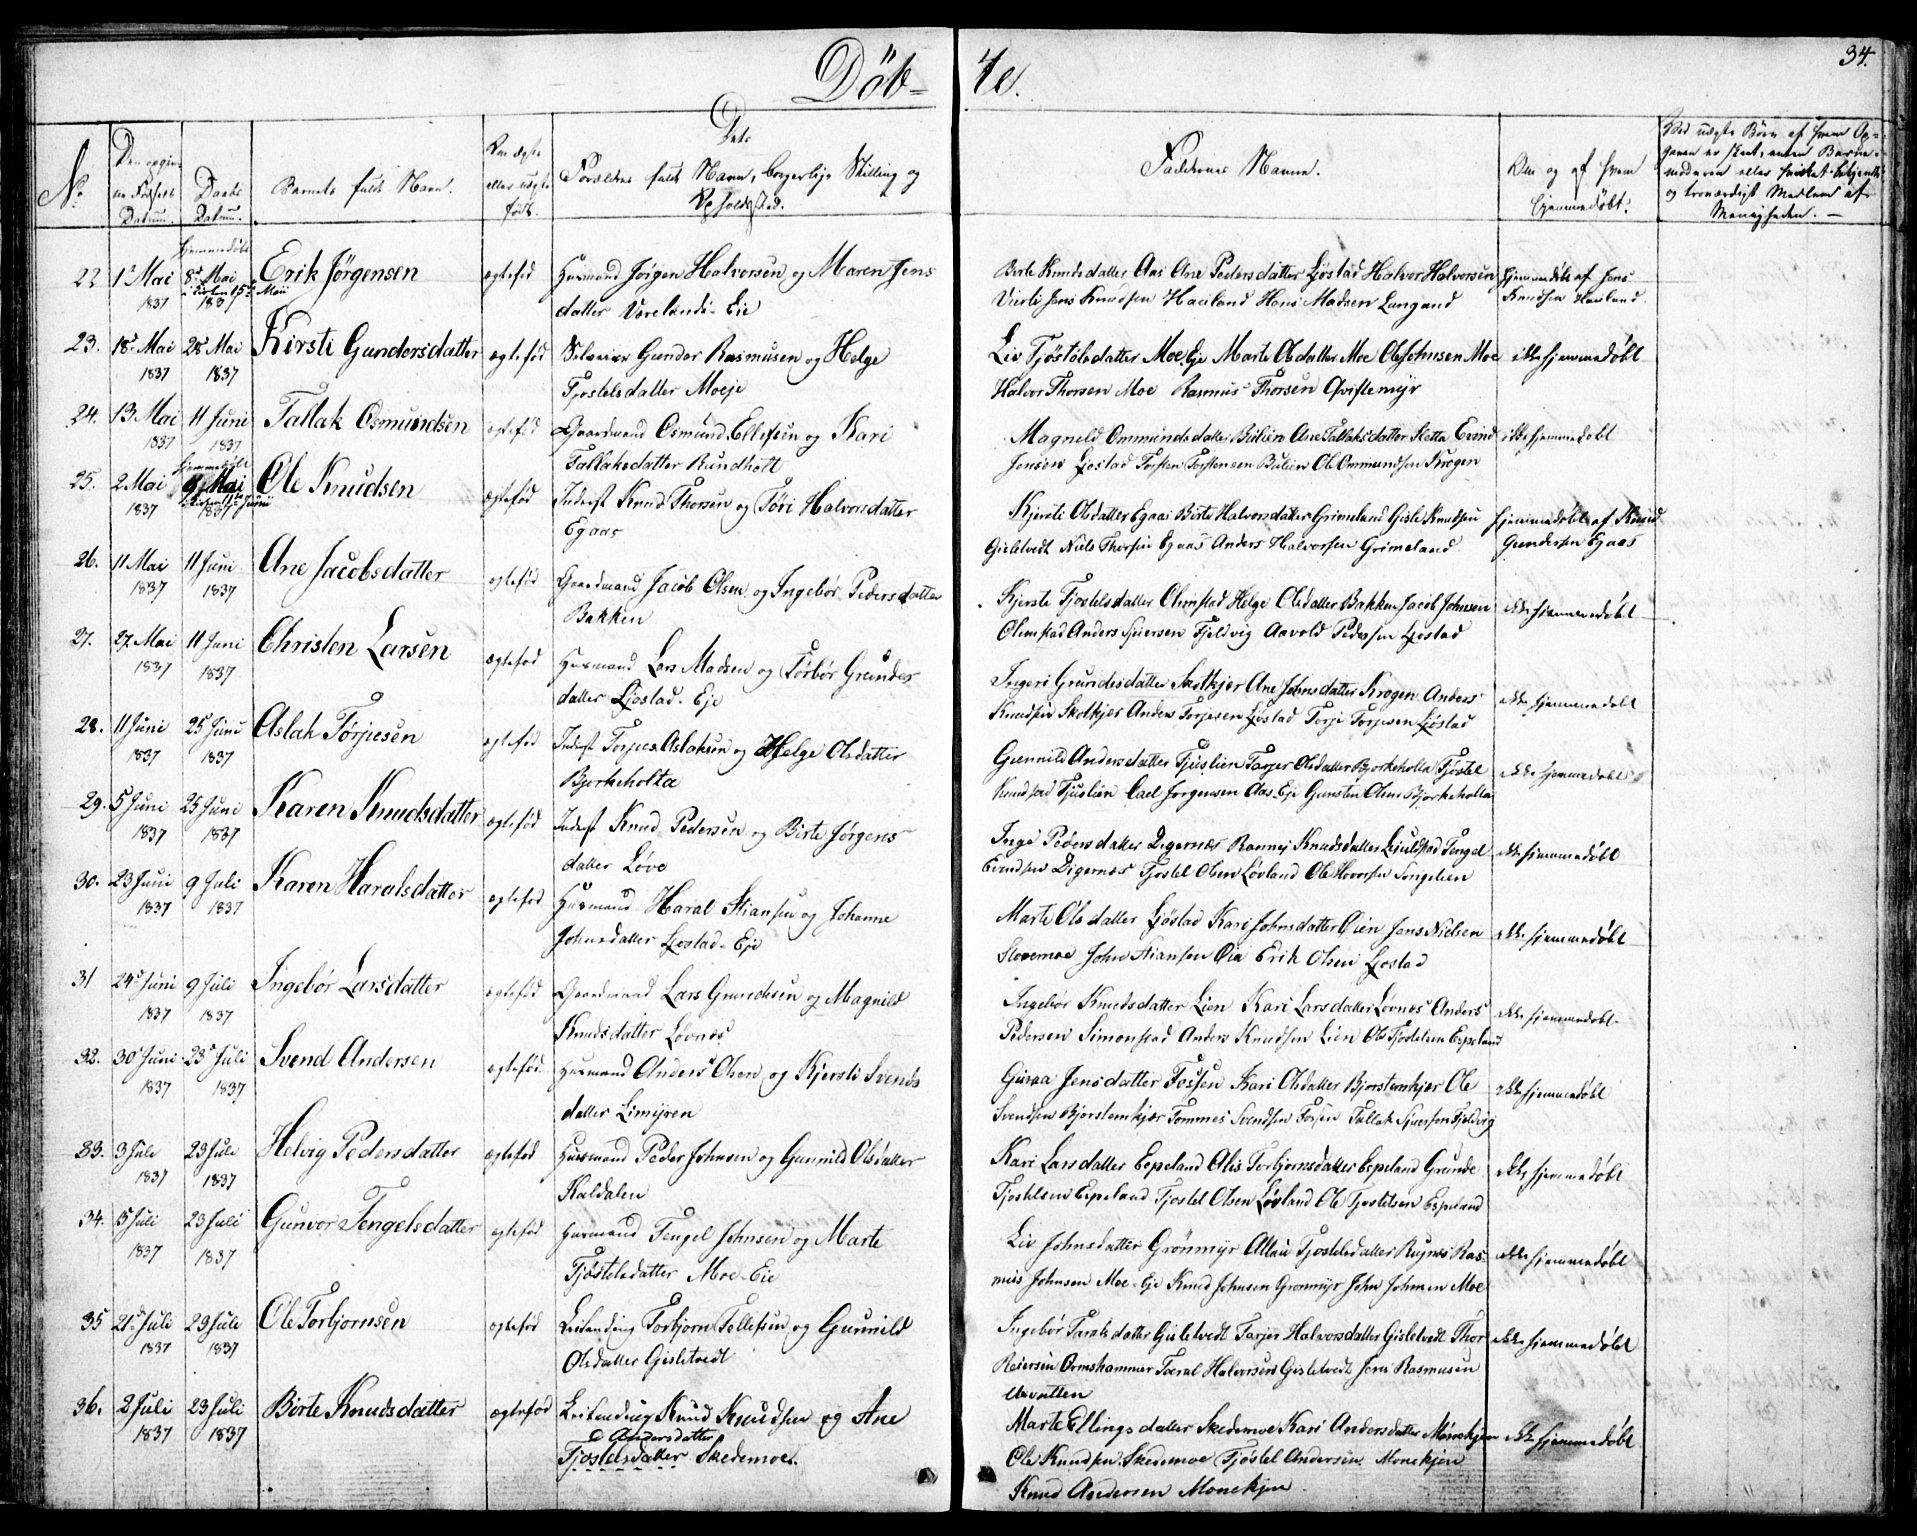 Döb- te.
34.
No.
Den opgivne Fødsels Datum.
Daabs Datum.
Barnets fulde Navn.
Om ægte eller uægte født.
Dets Forældres fulde Navn, borgerlige Stilling og Opholdsted.
Faddernes Navne.
Om og af hvem hjemmedøbt.
Ved uægte Børn af hvem Opgaven er skeet, enten Barnemoderen eller hvilket bekjendt og troværdigt Medlem af Menigheden.
22 1 Mai 1837 hjemmedøbt 8 Mai 1837 i Kirken 15 Mai Erik Jörgensen ægtefød Husmand Jörgen Halvorsen og Maren Jens
datter Verelands-Eie
Birte Knudsdatter Aas Ane Pedersdatter Ljøstad Halvor Halvorsen
Jens Knudsen Haviland Madsen Langand
hjemmedøbt af Jens
Knudsen Haviland
23. 18 Mai 1837 28 Mai 1837 Kirsti Gundersdatter ægtefød Selveier Gunder Rasmusen og Helge
Tjostelsdatter Moeje
Liv Tjöstolsdatter Moe Eje Marte Olsdatter Moe Ole Johnsen Moe
Halvor Thorsen Moe Rasmus Thorsen Qvistemyr
ikke hjemmedøbt
24. 13 Mai 1837 11 Juni 1837 Tallak Osmundsen ægtefød Gaardmand Osmund Ellefsen og Kari
Tallaksdatter Rundholt
Magnild Ommundsdatter Bulien Ane Tallaksdatter Sletta Evind
Jensen Ljostad Torsten Torstensen Bulien Ole Ommundsen Krogen
ikke hjemmedøbt
25. 2 Mai 1837 hjemmedøbt Mai 1837 i Kirken 11te Junii Ole Knudsen ægtefød Inderst Knud Thorsen og Töri Halvorsdatter
Egaas
Kjersti Olsdatter Egaas Birte Halvorsdatter Grimeland Gisle Knudsen
Gisletvedt Niels Thorsen Egaas Anders Halvorsen Grimeland
hjemmedøbt af Knud
Gundersen Egaas
26. 11 Mai 1837 11 Juni 1837 Ane Jacobsdatter ægtefød Gaardmand Jacob Olsen og Ingebør Pedersdatter
Bakken
Kjerste Tjostelsdatter Olimstad Helge Olsdatter Bakken Jacob Johnsen
Olimstad Anders Sjversen Fjeldvig Aavold Pedersen Ljostad
ikke hjemmedøbt
27. 27 Mai 1837 11 Juni 1837 Christen Larsen ægtefød Husmand Lars Madsen og Torbør Grundes
datter Ljostad-Eje
Ingeri Grundesdatter Skotkjær Ane Johnsdatter Krogen Anders
Knudsen Skotkjær Anders Torjesen Ljöstad Torje Torjesen Ljöstad
ikke hjemmedøbt
28. 11 Juni 1837 25 Juni 1837 Aslak Törjesen ægtefød Inderst Torjus Aslaksen og Helge Olsdatter
Bjorkeholta
Gunnild Andersdatter Fjuslien Tarjer Olsdatter Bjorkeholta Tjostel
Knudsen Fjuslien Carl Jorgensen Aas Eje Gunsten Olsen Bjorkeholta
ikke hjemmedøbt
29. 5 Juni 1837 25 Juni 1837 Karen Knudsdatter ægtefød Inderst Knud Pedersen og Birte Jörgens
datter Löve
Inge Pedersdatter Digernæs Ronnej Knudsdatter Tengel
Evindsen Digernæs Tjostel Olsen Løvland Ole Songelien
ikke hjemmedøbt
30. 23 Juni 1837 9 Juli 1837 Karen Haralsdatter ægtefød Husmand Haral Stiansen og Johanne
Johnsdatter Ljostad-Eje
Marte Olsdatter Ljøstad Kari Johnsdatter Øien Jens Nielsen
Slovemoe John Stiansen Øie Erik Olsen Ljostad
ikke hjemmedøbt
31 24 Juni 1837 9 Juli 1837 Ingebör Larsdatter ægtefød Gaardmand Lars Grundesen og Magnild
Knudsdatter Lovnæs
Ingebør Knudsdatter Lien Kari Larsdatter Lovnæs Anders
Pedersen Simonstad Anders Knudsen Lien Ole Tjostelsen Espeland
ikke hjemmedøbt
32. 30 Juni 1837 23 Juli 1837 Svend Andersen ægtefød Husmand Anders Olsen og Kjersti Svends
datter Limyren
Guroa Jensdatter Fossen Kari Olsdatter Bjorstemkjær Ole
Svendsen Bjorstemkjær Tommes Svendsen Fossen Tallak Sjversen Fjeldvig
ikke hjemmedøbt
33. 3 Juli 1837 23 Juli 1837 Helvig Pedersdatter ægtefød Husmand Peder Johnsen og Gunnild Olsdatter
Kaldalen
Kari Larsdatter Espeland Alis Torbjornsdatter Espeland Grunde
Tjostelsen Espeland Tjostel Olsen Løvland Ole Tjostelsen Espeland
ikke hjemmedøbt
34. 5 Juli 1837 23 Juli 1837 Gunvor Tengelsdatter ægtefød Husmand Tengel Johnsen og Marte
Tjöstelsdatter Moe-Eie
Liv Johnsdatter Grønmyr Tjostelsdatter Ras-
mus Johnsen Moe-Eje Knud Johnsen Gronmyr John Johnsen Moe
ikke hjemmedøbt
35 21 Juli 1837 23 Juli 1837 Ole Torbjornsen ægtefød Leilending Torbjorn Tellefsen og Gunnild
Olsdatter Gisletvedt
Ingebør Taralsdatter Gisletvedt Tarjer Halvorsdatter Gisletvedt Thor
Reiersen Ormshammer Taral Halvorsen Gisletvedt Jens Rasmusen
Uvatten
ikke hjemmedøbt
36. 2 Juli 1837 23 Juli 1837 Birte Knudsdatter ægtefød Leilending Knud Knudsen og Ane
Andersdatter
Tjostelsdatter Skedemoe
Marte Ellingsdatter Skedemoe Kari Andersdatter Monekjen
Ole Knudsen Skedemoe Tjøstel Andersen Monekjen
Knud Andersen Monekjen
ikke hjemmedøbt